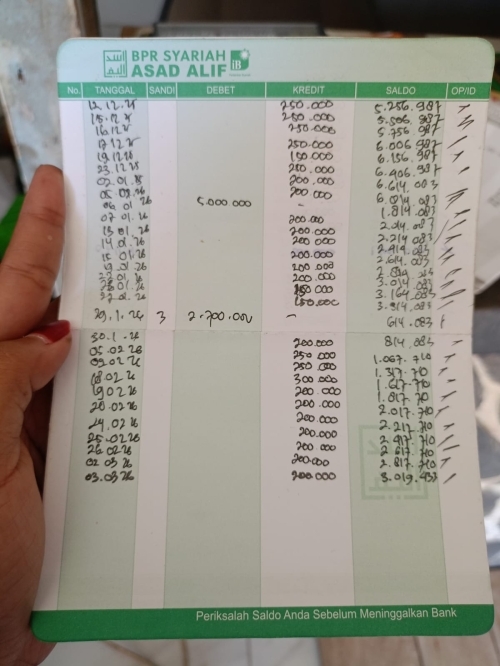 BPR SYARIAH
ASAD ALIF
iB
No. TANGGAL SANDI DEBET KREDIT SALDO OP/ID
12.12.25 250.000 5.256.987
15.12.25 250.000 5.506.987
16.12.25 250.000 5.756.987
17.12.25 250.000 6.006.987
19.12.25 150.000 6.156.987
23.12.25 250.000 6.406.987
02.01.26 200.000 6.614.083
05.01.26 200.000 6.814.083
06.01.26 5.000.000 - 1.814.083
07.01.26 200.000 2.014.083
13.01.26 200.000 2.214.083
14.01.26 200.000 2.414.083
15.01.26 200.000 2.614.083
19.01.26 200.000
22.01.26 200.000 3.014.083
150.000 3.164.083
150.000
29.1.26 3 2.700.000 - 614.083
30.1.26 200.000 814.083
05.02.26 250.000 1.067.710
09.02.26 250.000 1.317.710
18.02.26 300.000 1.617.710
19.02.26 200.000 1.817.710
20.02.26 200.000 2.017.710
24.02.26 200.000 2.217.710
25.02.26 200.000 2.417.710
26.02.26 200.000 2.617.710
02.03.26 200.000 2.817.710
03.03.26 200.000 3.019.433
Periksalah Saldo Anda Sebelum Meninggalkan Bank